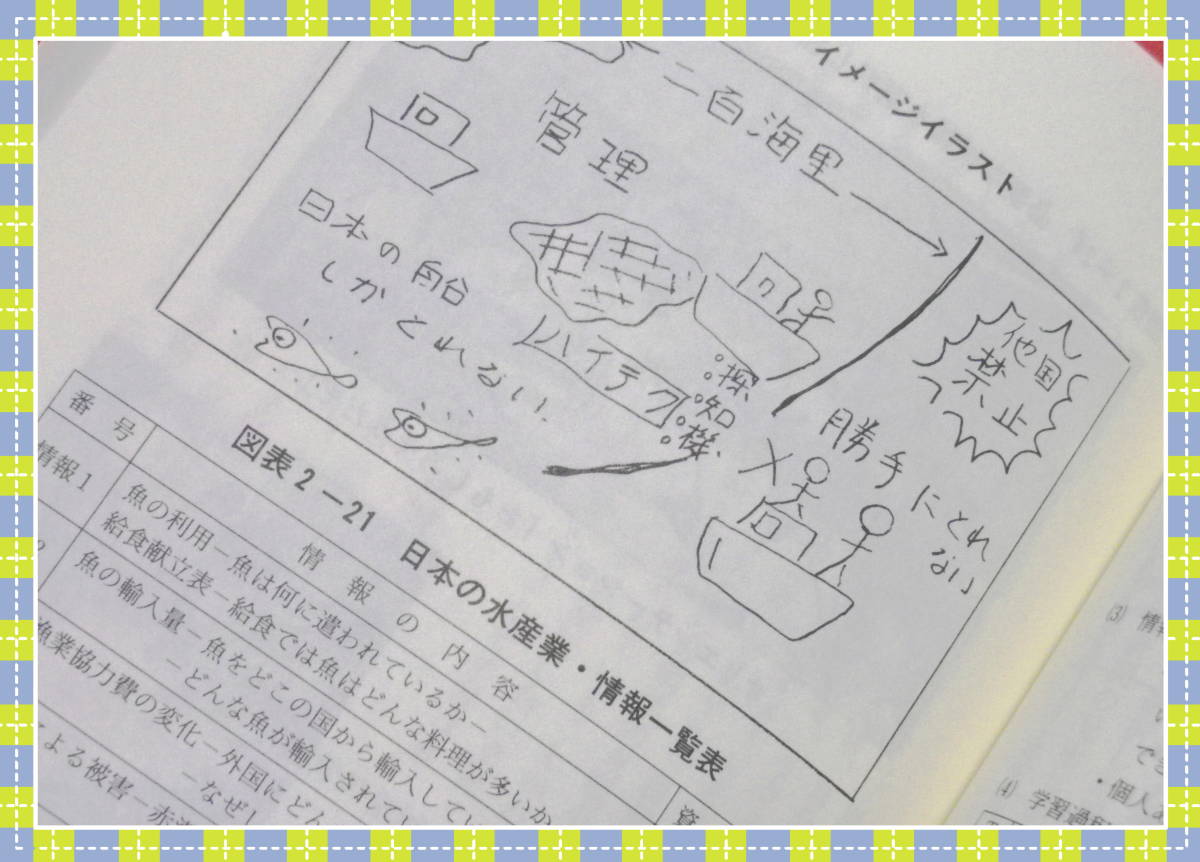 イメージイラスト
二百海里
管理
日本の船
しかとれない.
ハイテク
探
知
機
他国
禁止
勝手にとれ
ない
図表2-21 日本の水産業・情報一覧表
番号
情報の内容
情報1
魚の利用-魚は何に遣われているか-
給食献立表-給食では魚はどんな料理が多いか
魚の輸入量-魚をどこの国から輸入してい
-どんな魚が輸入されてい
漁業協力費の変化-外国にどん
-なぜし
による被害-赤
資
(3) 情
(4) 学習過程
・個人